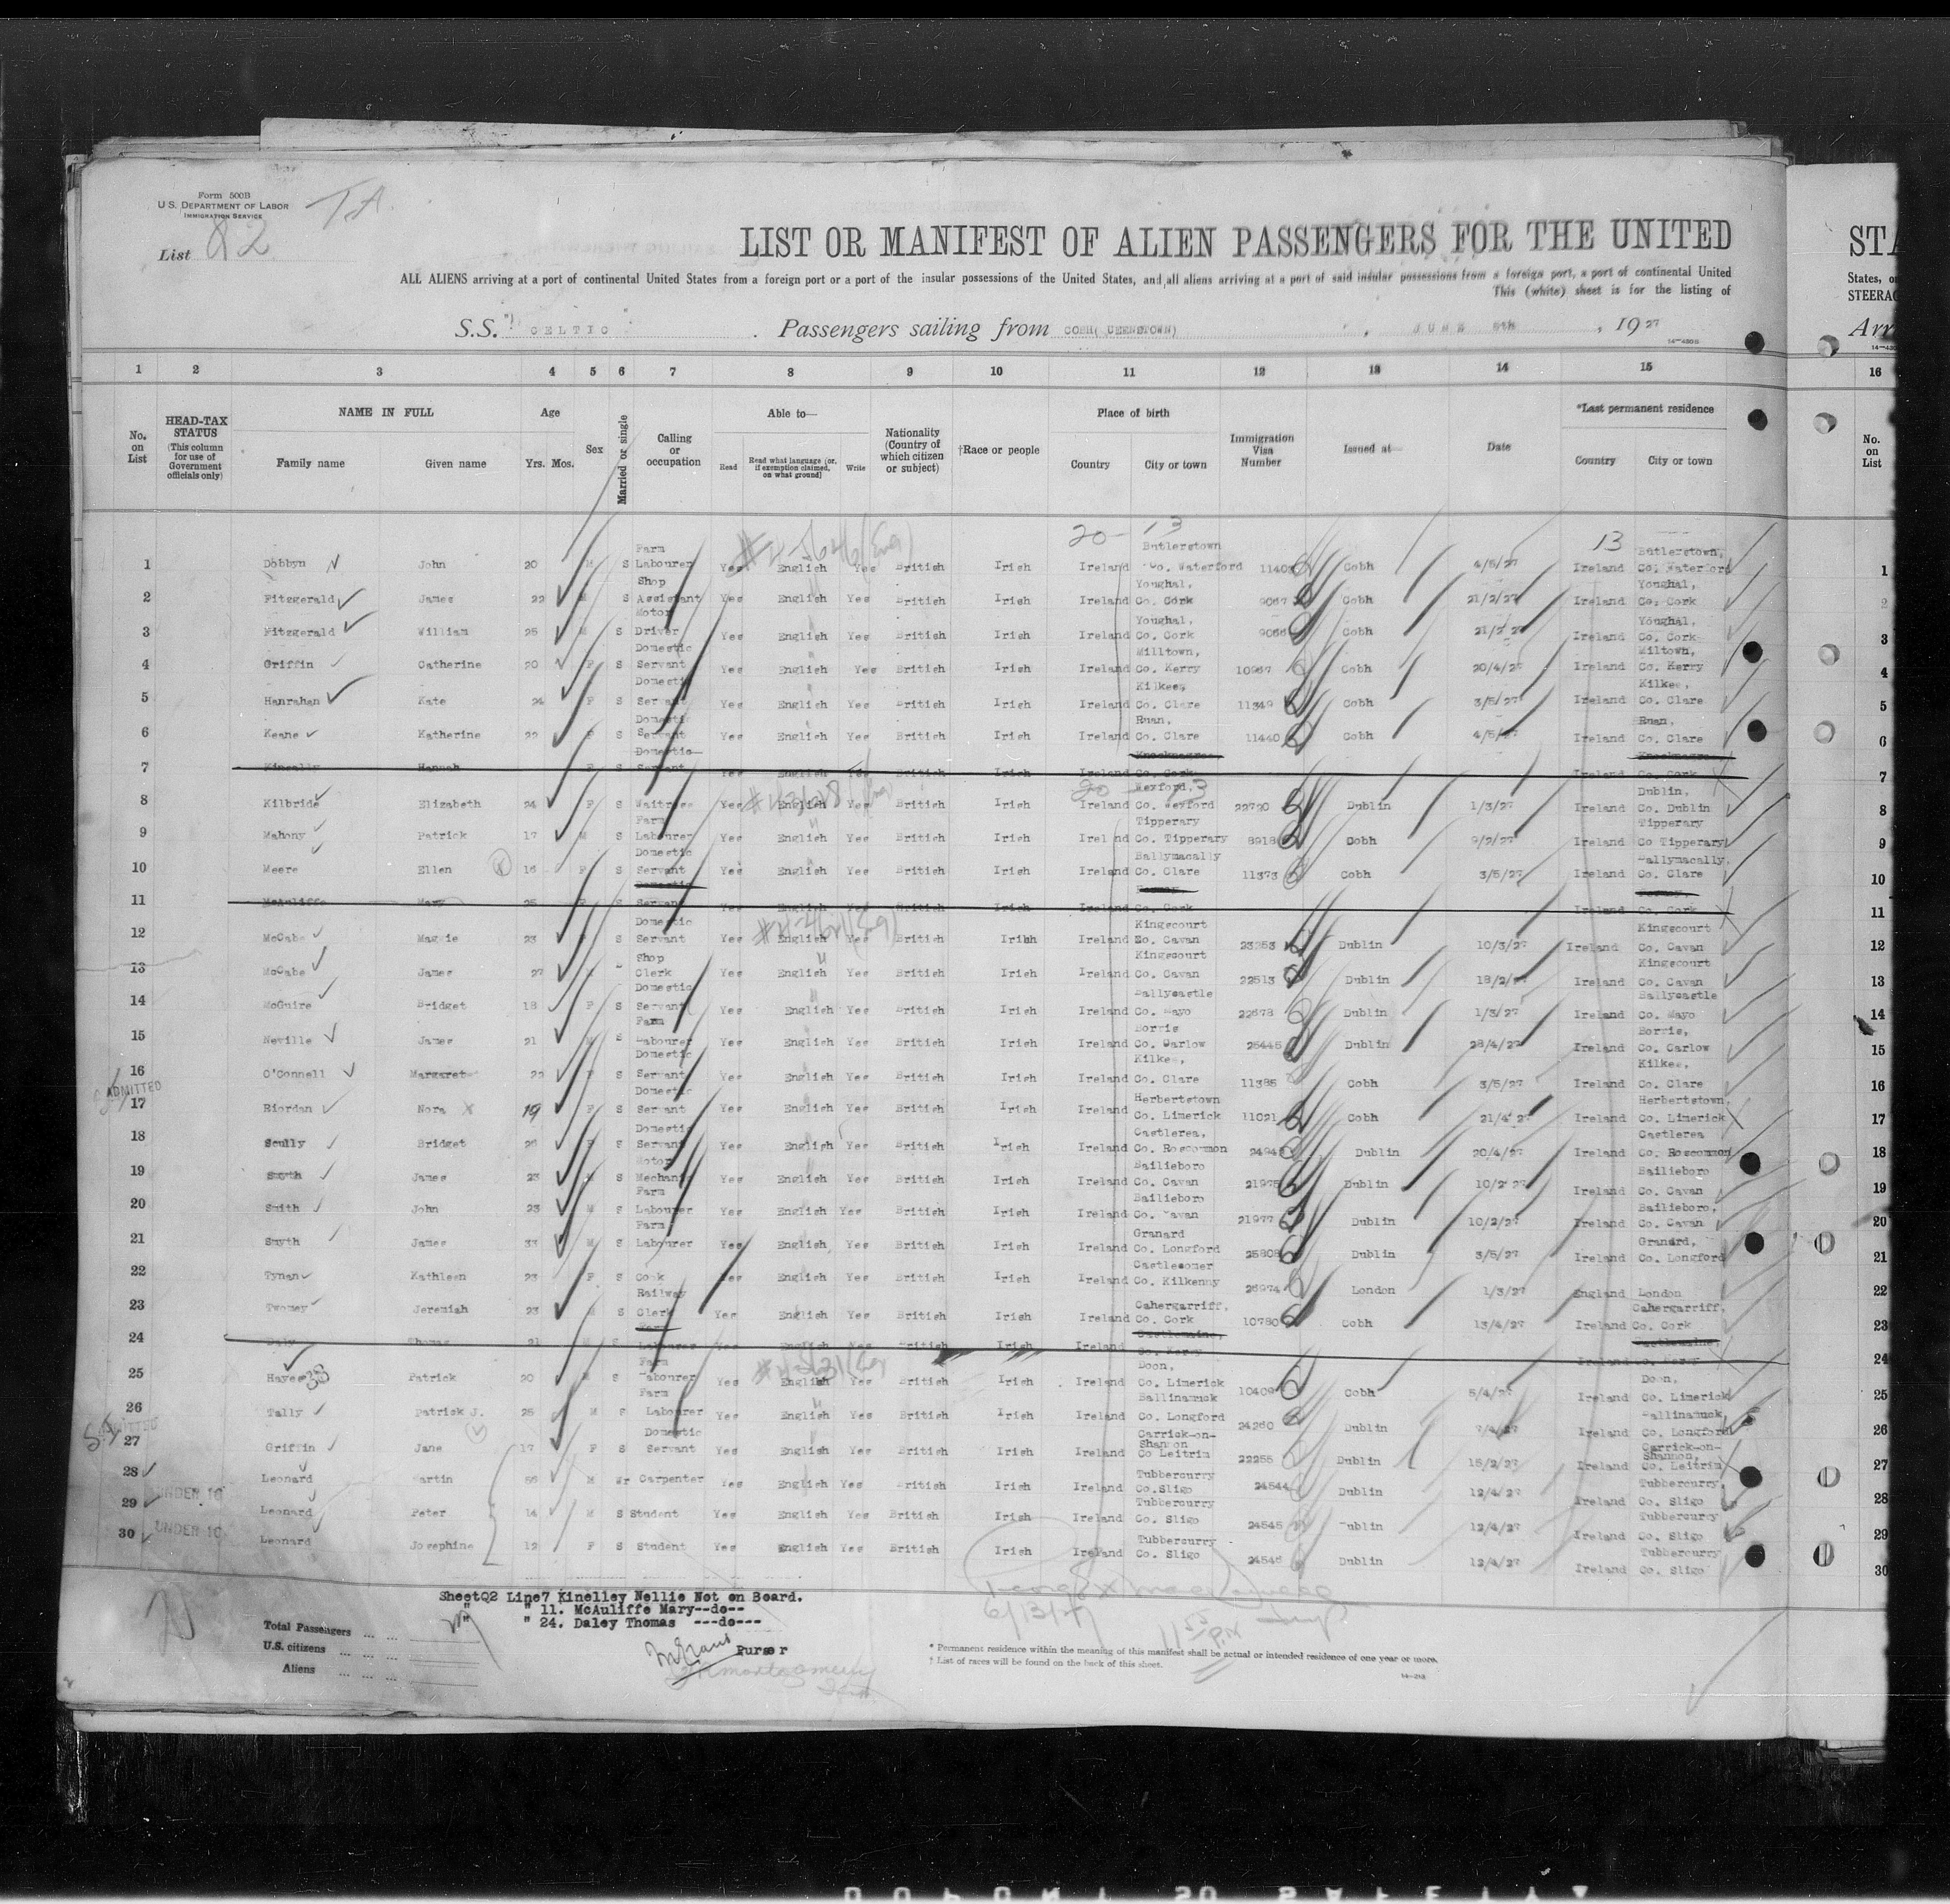 Form 500B
U.S. DEPARTMENT OF LABOR
IMMIGRATION SERVICE
T.A.
List 82
LIST OR MANIFEST OF ALIEN PASSENGERS FOR THE UNITED
STA
ALL ALIENS arriving at a port of continental United States from a foreign port or a port of the insular possessions of the United States, and all aliens arriving at a port of said insular possessions from a foreign port, a port of continental United
States, o
This (white) sheet is for the listing of
STEERAG
S.S. "CELTIC". Passengers sailing from COBH( UEENSTOWN) , JUNE 5th , 1927
Arr
1 2 3 4 5 6 7 8 9 10 11 12 13 14 15 16
No. on List
HEAD-TAX STATUS (This column for use of Government officials only)
NAME IN FULL Family name Given name
Age Yrs. Mos.
Sex
Married or single
Calling or occupation
Able to— Read Read what language (or, if exemption claimed, on what ground) Write
Nationality (Country of which citizen or subject)
†Race or people
Place of birth Country City or town
Immigration Visa Number
Issued at—
Date
*Last permanent residence Country City or town
No. on List
20 - 13 13
1 Dobbyn John 20 M S Farm Labourer Yes English Yes British Irish Ireland Butlerstown Co. Waterford 1140 Cobh 4/5/27 Ireland Butlerstown, Co. Waterford 1
2 Fitzgerald James 22 M S Shop Assistant Yes English Yes British Irish Ireland Youghal, Co. Cork 9067 Cobh 21/2/27 Ireland Youghal, Co. Cork 2
3 Fitzgerald William 25 M S Motor Driver Yes English Yes British Irish Ireland Youghal, Co. Cork 9066 Cobh 21/2 27 Ireland Youghal, Co. Cork 3
4 Griffin Catherine 20 F S Domestic Servant Yes English Yes British Irish Ireland Milltown, Co. Kerry 10967 Cobh 20/4/27 Ireland Miltown, Co. Kerry 4
5 Hanrahan Kate 24 F S Domestic Servant Yes English Yes British Irish Ireland Kilkee, Co. Clare 11349 Cobh 3/5/27 Ireland Kilkee, Co. Clare 5
6 Keane Katherine 22 F S Domestic Servant Yes English Yes British Irish Ireland Ruan, Co. Clare 11440 Cobh 4/5/27 Ireland Ruan, Co. Clare 6
7 Hannah F S Domestic Servant Yes English Yes British Irish Ireland Co. Cork Ireland Co. Cork 7
20 - 13
8 Kilbride Elizabeth 24 F S Waitress Yes English Yes British Irish Ireland Wexford, Co. Wexford 22720 Dublin 1/3/27 Ireland Dublin, Co. Dublin 8
9 Mahony Patrick 17 M S Farm Labourer Yes English Yes British Irish Irel nd Tipperary Co. Tipperary 8918 Cobh 9/2/27 Ireland Tipperary Co Tipperary 9
10 Meere Ellen 16 F S Domestic Servant Yes English Yes British Irish Ireland Ballymacally Co. Clare 11373 Cobh 3/5/27 Ireland Ballymacally, Co. Clare 10
11 McAuliffe Mary 25 F S Domestic Servant Yes English Yes British Irish Ireland Co. Cork Ireland Co. Cork 11
12 McCabe Maggie 23 F S Domestic Servant Yes English Yes British Irish Ireland Kingscourt Co. Cavan 23253 Dublin 10/3/27 Ireland Kingscourt Co. Cavan 12
13 McCabe James 27 Shop Clerk Yes English Yes British Irish Ireland Kingscourt Co. Cavan 22513 Dublin 18/2/27 Ireland Kingscourt Co. Cavan 13
14 McGuire Bridget 18 F S Domestic Servant Yes English Yes British Irish Ireland Ballycastle Co. Mayo 22678 Dublin 1/3/27 Ireland Ballycastle Co. Mayo 14
15 Neville James 21 M S Farm Labourer Yes English Yes British Irish Ireland Borris Co. Carlow 25445 Dublin 28/4/27 Ireland Borris, Co. Carlow 15
16 O'Connell Margaret 22 F S Domestic Servant Yes English Yes British Irish Ireland Kilkee, Co. Clare 11385 Cobh 3/5/27 Ireland Kilkee, Co. Clare 16
ADMITTED
17 Riordan Nora 19 F S Domestic Servant Yes English Yes British Irish Ireland Herbertstown Co. Limerick 11021 Cobh 21/4/27 Ireland Herbertstown, Co. Limerick 17
18 Scully Bridget 26 F S Domestic Servant Yes English Yes British Irish Ireland Castlerea, Co. Roscommon 2494 Dublin 20/4/27 Ireland Castlerea Co. Roscommon 18
19 Smyth James 23 M S Motor Mechanic Yes English Yes British Irish Ireland Bailieboro Co. Cavan 21975 Dublin 10/2 27 Ireland Bailieboro Co. Cavan 19
20 Smith John 23 M S Farm Labourer Yes English Yes British Irish Ireland Bailieboro Co. Cavan 21977 Dublin 10/2/27 Ireland Bailieboro, Co. Cavan 20
21 Smyth James 33 M S Farm Labourer Yes English Yes British Irish Ireland Granard Co. Longford 25808 Dublin 3/5/27 Ireland Granard, Co. Longford 21
22 Tynan Kathleen 23 F S Cook Yes English Yes British Irish Ireland Castlecomer Co. Kilkenny 26974 London 1/3/27 England London 22
23 Twomey Jeremiah 23 M S Railway Clerk Yes English Yes British Irish Ireland Cahergarriff, Co. Cork 10780 Cobh 13/4/27 Ireland Cahergarriff, Co. Cork 23
24 Daly Thomas 21 M S Farm Labourer Yes English British Irish Ireland Castlemaine, Co. Kerry Ireland Castlemaine, Co. Kerry 24
25 Hayes 38 Patrick 20 M S Farm Labourer Yes English Yes British Irish Ireland Doon, Co. Limerick 10409 Cobh 5/4/27 Ireland Doon, Co. Limerick 25
26 Tally Patrick J. 25 M S Farm Labourer Yes English Yes British Irish Ireland Ballinamuck Co. Longford 24260 Dublin 7/4/27 Ireland Ballinamuck Co. Longford 26
27 Griffin Jane 17 F S Domestic Servant Yes English Yes British Irish Ireland Carrick-on-Shannon Co Leitrim 22255 Dublin 15/2/27 Ireland Carrick-on-Shannon, Co. Leitrim 27
28 Leonard Martin 56 M Wr Carpenter Yes English Yes British Irish Ireland Tubbercurry Co.Sligo 24544 Dublin 12/4/27 Ireland Tubbercurry, Co. Sligo 28
UNDER 16
29 Leonard Peter 14 M S Student Yes English Yes British Irish Ireland Tubbercurry Co. Sligo 24545 Dublin 12/4/27 Ireland Tubbercurry Co. Sligo 29
UNDER 16
30 Leonard Josephine 12 F S Student Yes English Yes British Irish Ireland Tubbercurry Co. Sligo 24546 Dublin 12/4/27 Ireland Tubbercurry Co. Sligo 30
SheetQ2 Line7 Kinelley Nellie Not on Board.
" " 11. McAuliffe Mary--do--
" " 24. Daley Thomas ---do---
Purser
6/13/27
Total Passengers
U.S. citizens
Aliens
* Permanent residence within the meaning of this manifest shall be actual or intended residence of one year or more.
† List of races will be found on the back of this sheet.